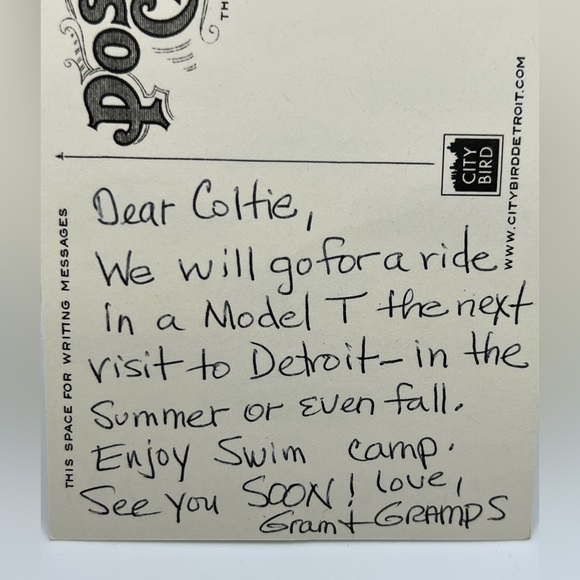 Pos
TH
CITY
BIRD
WWW.CITYBIRDDETROIT.COM
THIS SPACE FOR WRITING MESSAGES
Dear Coltie,
We will go for a ride
in a Model T the next
visit to Detroit - in the
Summer or even fall.
Enjoy Swim camp.
See you SOON! love,
Gram + GRAMPS